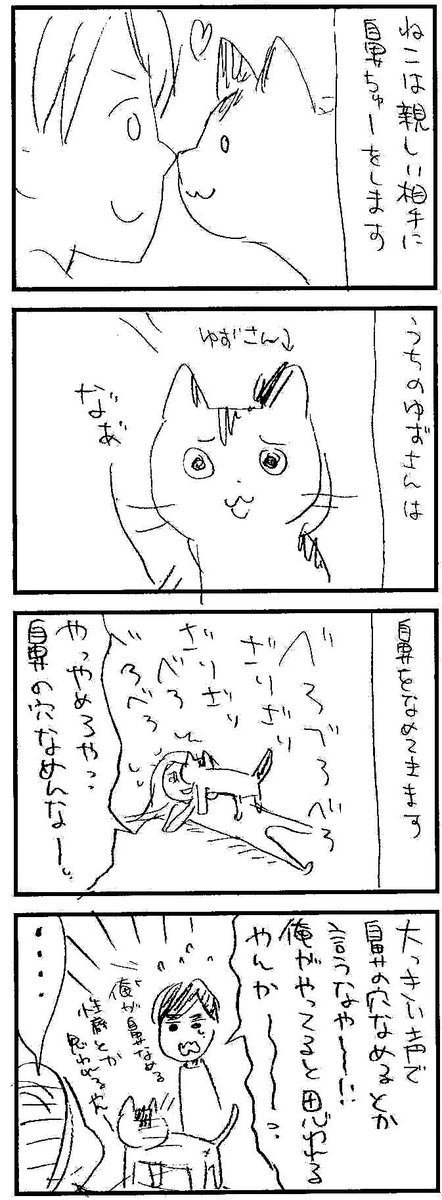 ねこは親しい相手に
鼻ちゅーをします
うちのゆずさんは
ゆずさん→
なあ゛
鼻をなめてきます
べろべろべろ
ざりざり
ざりざり
べろべろ
べろべろ
やっやめろやっ
鼻の穴なめんなーっ
大っきい声で
鼻の穴なめるとか
言うなやー!!
俺がやってると思われる
やんかーーっ
俺が鼻なめる
性癖とか
思われるやんー
・・・・